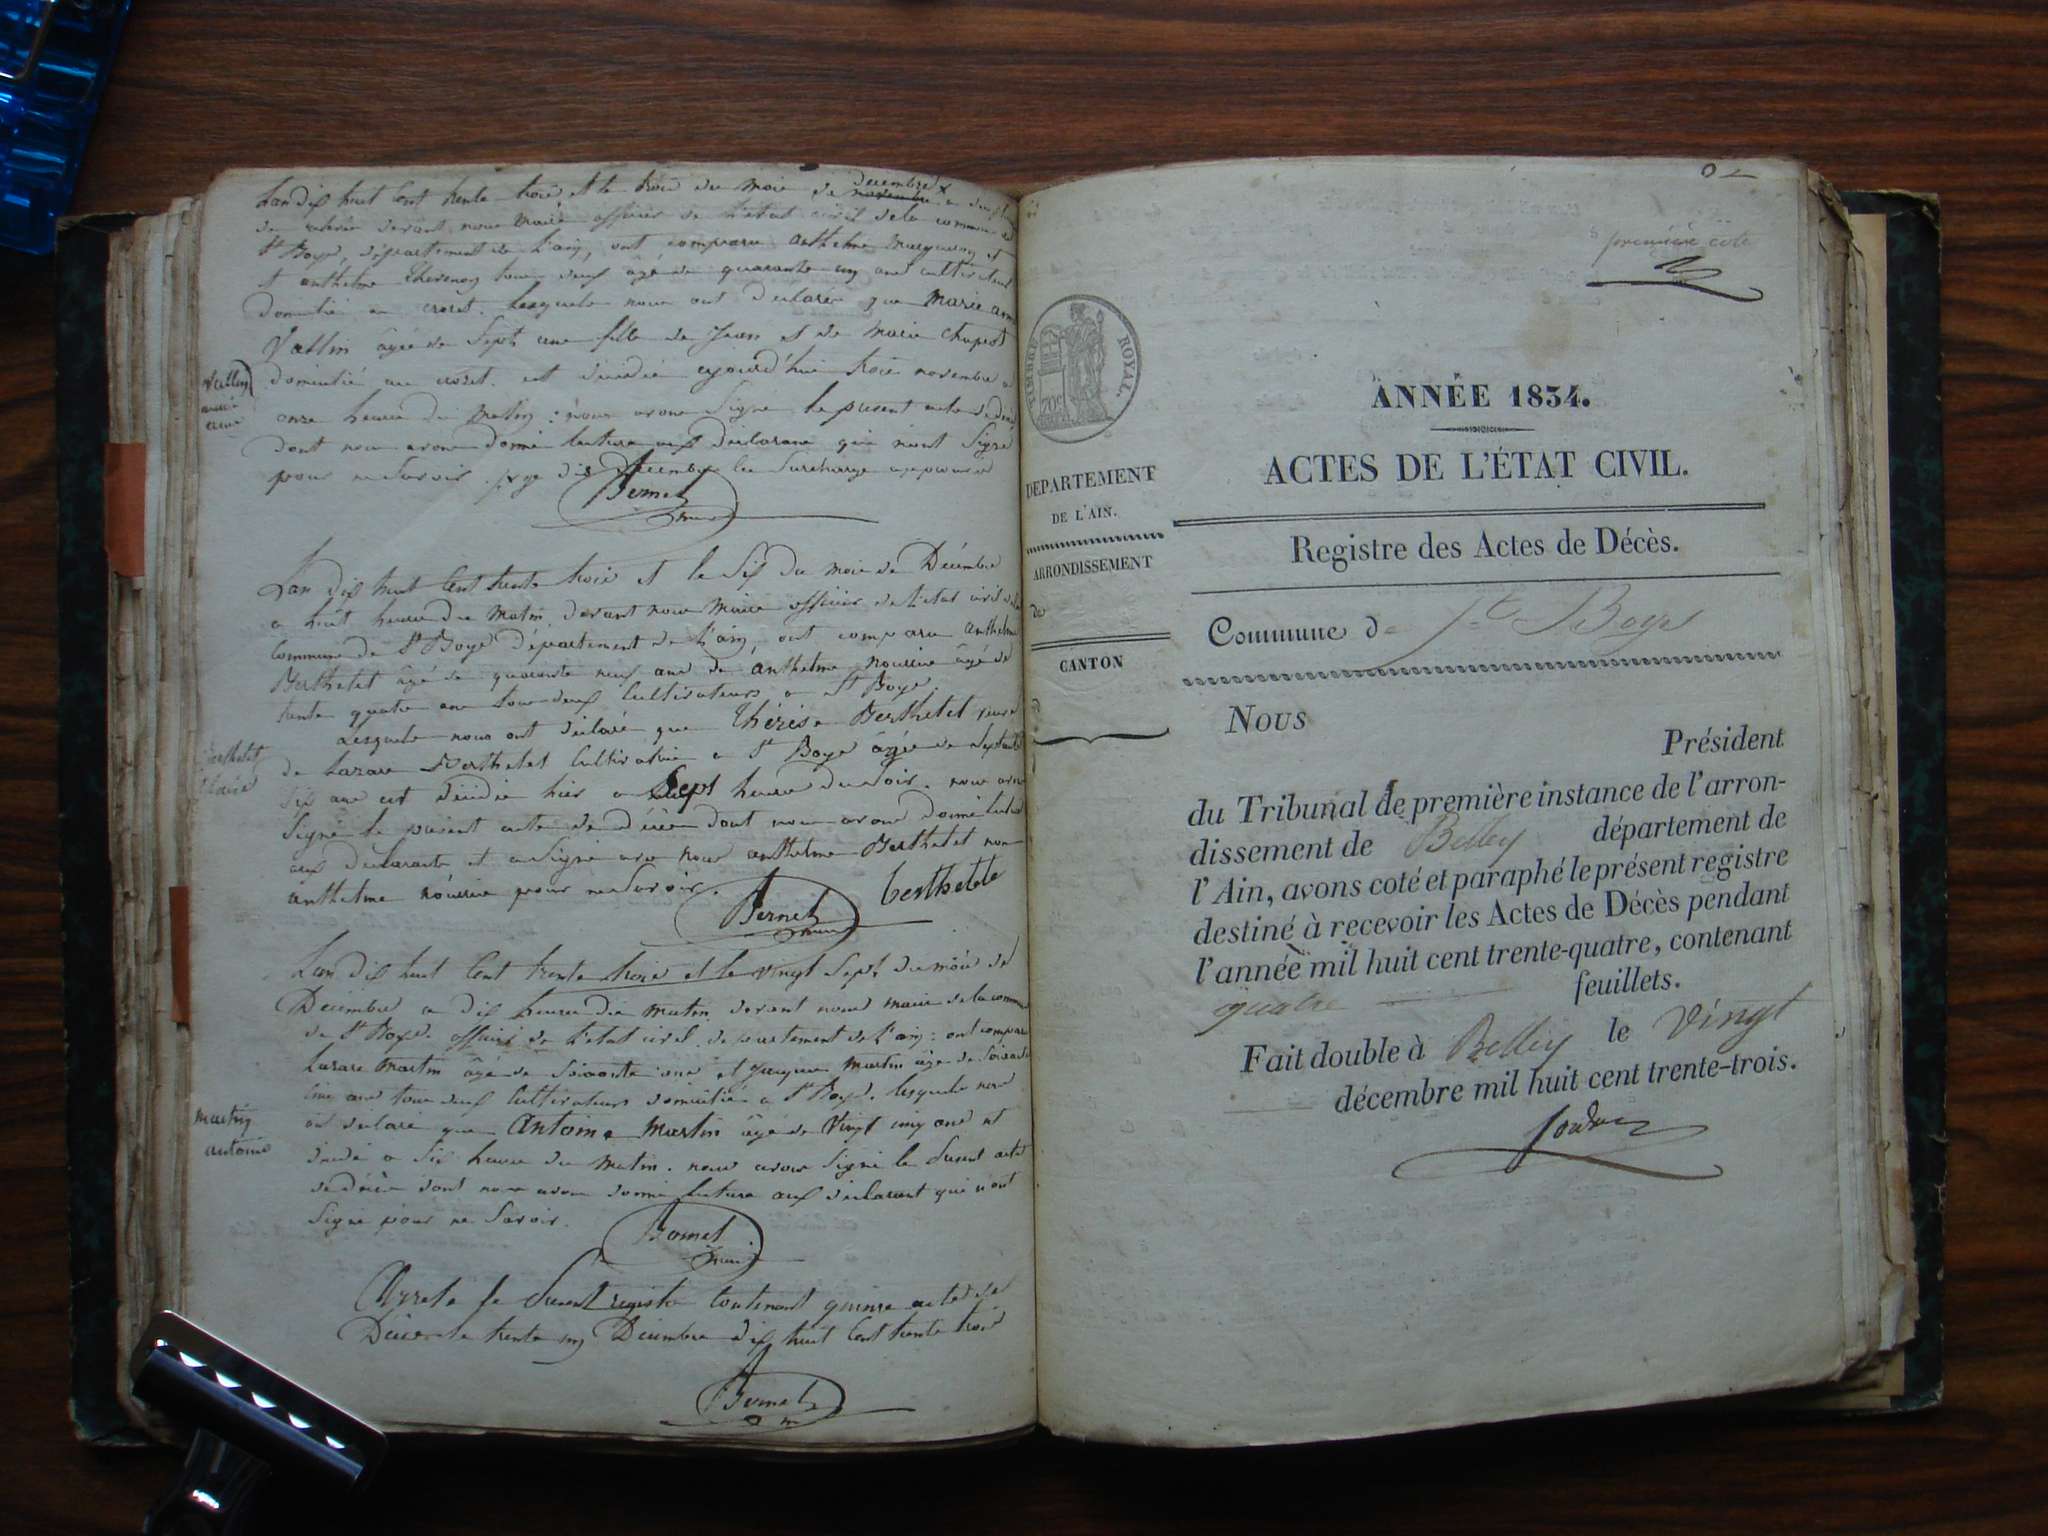 L'an dix huit Cent trente trois et le trois du mois de novembre decembre
devant nous maire officier de l'état civil de la commune de
St Boys, département de l'ain, ont comparu anthelme
et anthelme tous deux âgé de quarante cultivateurs
domicilié au crozet. lesquels nous ont déclaré que Marie anne
Vallin âgée de Sept ans fille de Jean et de Marie
Vallin
marie
anne
domicilié au crozet. est décédée ajourd'hui trois novembre a
onze heures du Matin : nous avons Signé le present acte de décès
dont nous avons donné lecture aux déclarans qui n'ont Signé
pour ne Savoir. decembre la Surcharge approuvée
Bornet
maire
L'an dix huit Cent trente trois et le Six du mois de Décembre
a huit heures du Matin, devant nous Maire officier de l'état civil de la
Commune de St Boys Département de l'ain, ont comparu anthelme
Berthelet âgé de quarante neuf ans de anthelme nourrice âgé de
trente quatre ans tous deux Cultivateurs a St Boys.
Lesquels nous ont déclaré que thérèse Berthelet veuve
Berthelet
de Lazare Berthelet Cultivateur a St Boys âgée de Septante
Six ans est décédée hier a Sept heures du Soir. nous avons
Signé le présent acte de décès dont nous avons donné lecture
aux déclarants et a Signé avec nous anthelme Berthelet non
anthelme nourrice pour ne Savoir.
Bornet
maire
berthelete
L'an dix huit Cent trente trois et le vingt Sept du mois de
Décembre a dix heures du matin devant nous maire de la commune
de St Boys officier de l'état civil département de l'ain : ont comparu
Lazare Martin âgé de Soixante ans et Jacques Martin âgé de Soixante
cinq ans tous deux Cultivateurs domicilié a St Boys. lesquels nous
martin
antoine
ont déclaré que Antoine Martin âgé de Vingt cinq ans est
décédé a Six heures du Matin. nous avons Signé le present acte
de décès dont nous avons donné lecture aux déclarant qui n'ont
Signé pour ne Savoir.
Bornet
maire
Arreté le present registre Contenant quinze actes de
Décès le trente un Décembre dix huit Cent trente trois
Bornet
première cote
TIMBRE ROYAL
70c
DEPARTEMENT
DE L'AIN.
ARRONDISSEMENT
de
CANTON
d
ANNÉE 1834.
ACTES DE L'ÉTAT CIVIL.
Registre des Actes de Décès.
Commune de St Boys
Nous
Président
du Tribunal de première instance de l'arron-
dissement de Belley département de
l'Ain, avons coté et paraphé le présent registre
destiné à recevoir les Actes de Décès pendant
l'année mil huit cent trente-quatre, contenant
quatre feuillets.
Fait double à Belley le vingt
décembre mil huit cent trente-trois.